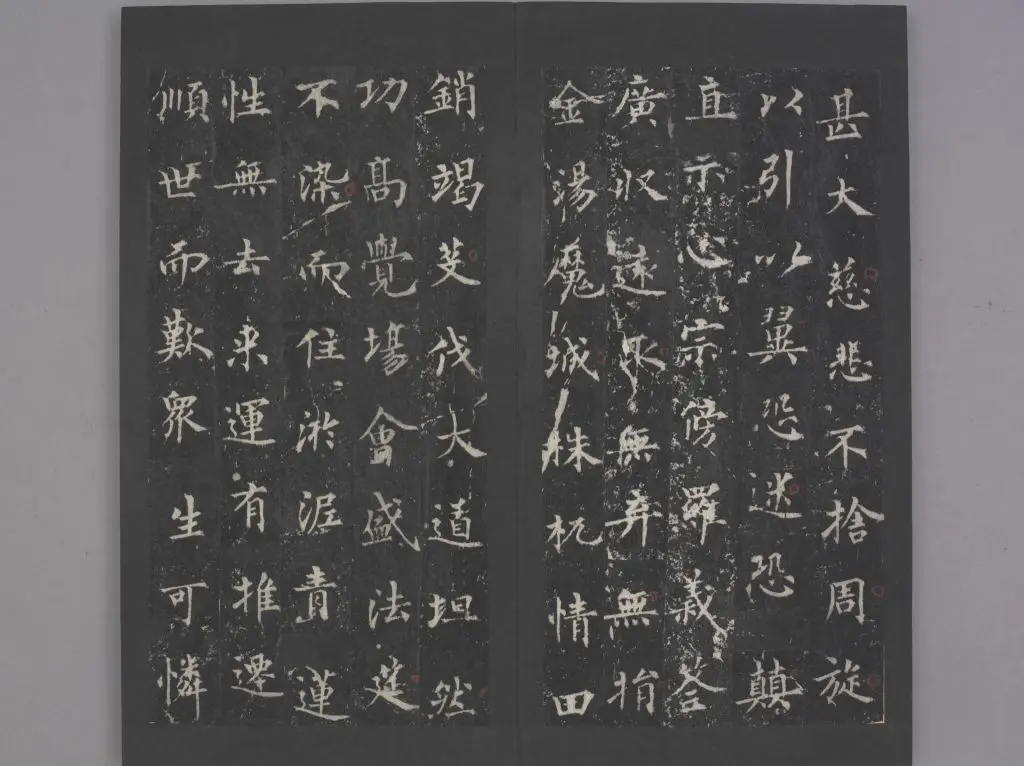 甚大慈悲不捨周旋
以引以翼恐迷恐顛
直示心宗傍羅義筌
廣収遠無弃無捐
金湯魔城株杌情田
銷竭芟伐大道坦然
功高覺場會盛法筵
不染而住淤泥青蓮
性無去來運有推遷
順世而歎眾生可憐